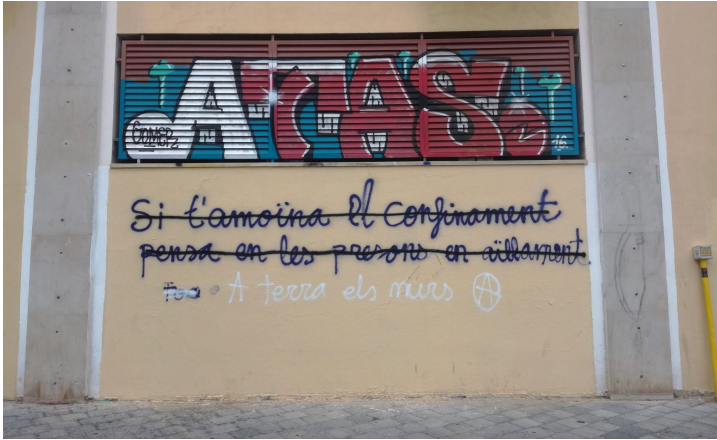 ATAS
GOMER
16
Si t'amoïna El Confinament
pensa en les presons en aïllament.
A terra els murs Ⓐ